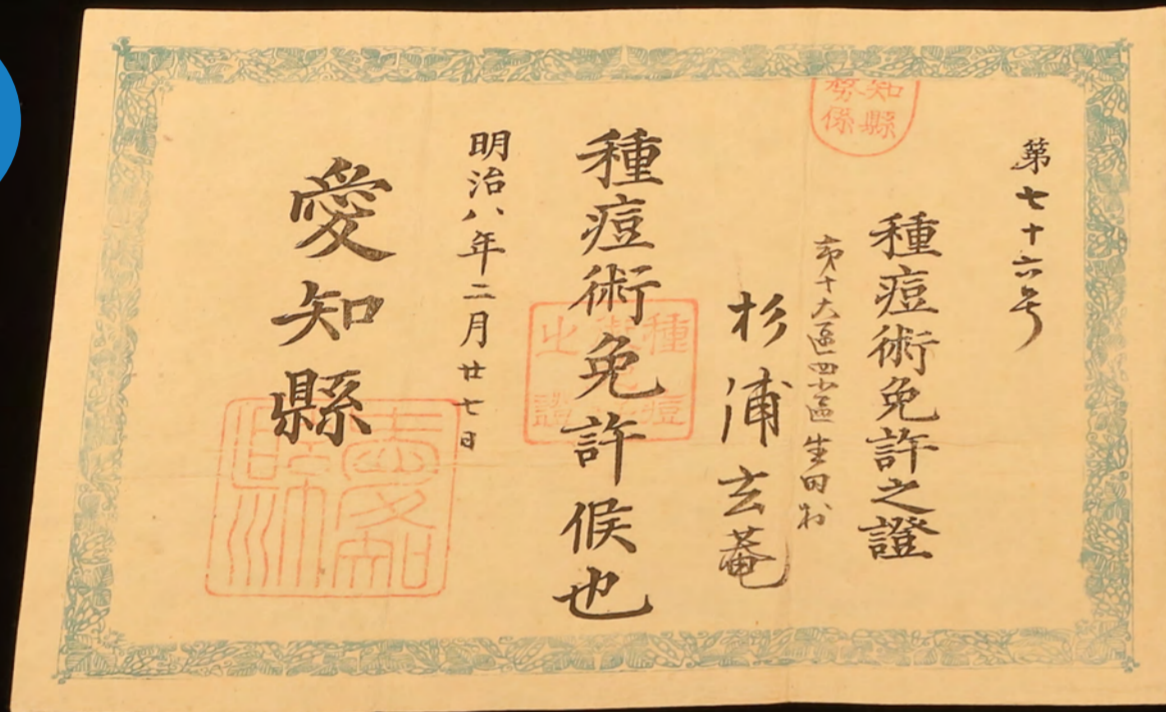 第七十六号
種痘術免許之證
第十大區四小區生田村
杉浦玄菴
種痘術免許候也
明治八年二月廿七日
愛知縣
知縣
務係
種痘
之證
愛知縣